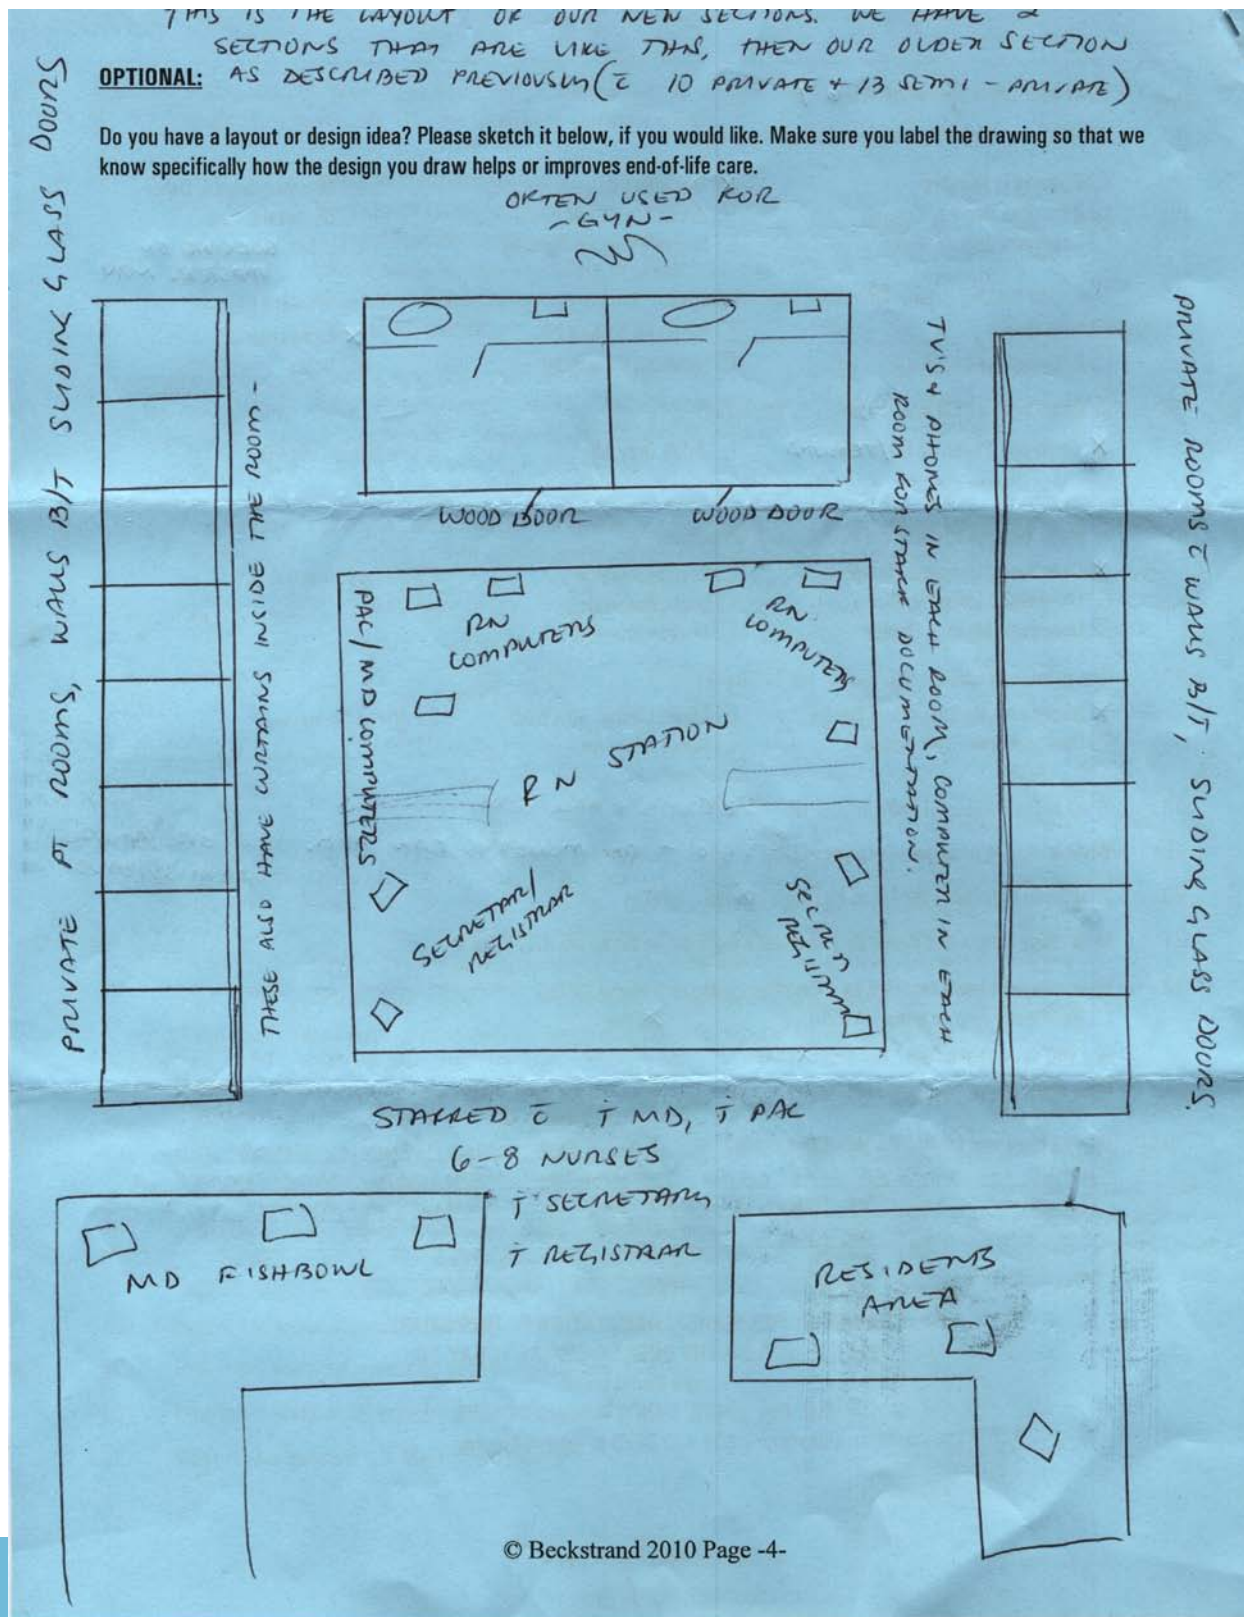 THIS IS THE LAYOUT OF OUR NEW SECTIONS. WE HAVE 2
SECTIONS THAT ARE LIKE THIS, THEN OUR OLDER SECTION
OPTIONAL: AS DESCRIBED PREVIOUSLY (c̄ 10 PRIVATE + 13 SEMI-PRIVATE)
Do you have a layout or design idea? Please sketch it below, if you would like. Make sure you label the drawing so that we
know specifically how the design you draw helps or improves end-of-life care.
OFTEN USED FOR
-GYN-
PRIVATE PT ROOMS, WALLS B/T SLIDING GLASS DOORS
THESE ALSO HAVE CURTAINS INSIDE THE ROOM-
WOOD DOOR
WOOD DOOR
TV'S + PHONES IN EACH ROOM, COMPUTER IN EACH
ROOM FOR STAFF DOCUMENTATION.
PRIVATE ROOMS c̄ WALLS B/T, SLIDING GLASS DOORS.
PAC/MD COMPUTERS
RN
COMPUTERS
RN
COMPUTERS
RN STATION
SECRETARY/
REGISTRAR
REGISTRAR
STAFFED c̄ i MD, i PAC
6-8 NURSES
i SECRETARY
i REGISTRAR
MD FISHBOWL
RESIDENTS
AREA
© Beckstrand 2010 Page -4-